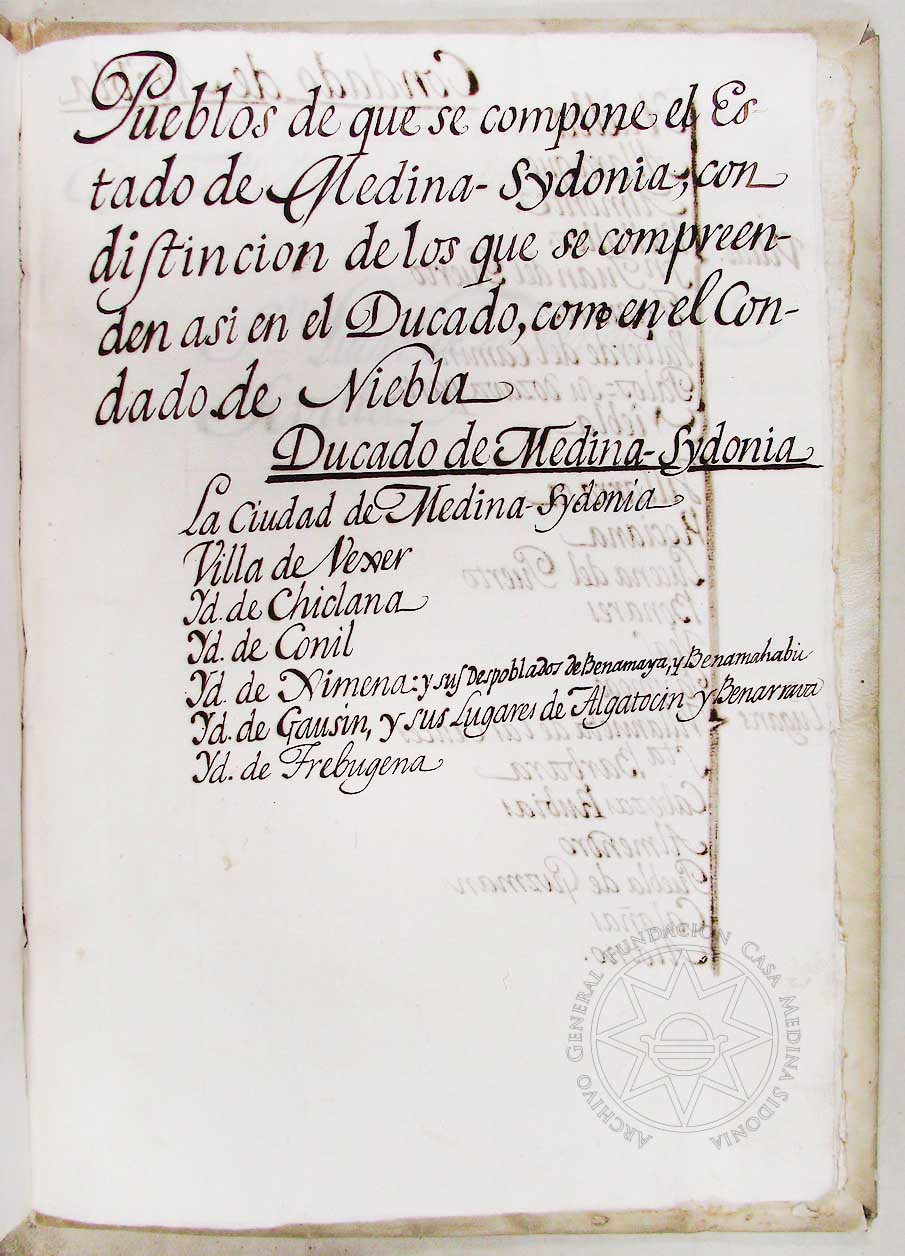 Pueblos de que se compone el Es-
tado de Medina-Sydonia, con
distincion de los que se compreen-
den asi en el Ducado, como en el Con-
dado de Niebla
Ducado de Medina-Sydonia
La Ciudad de Medina-Sydonia
Villa de Vexer
Yd. de Chiclana
Yd. de Conil
Yd. de Ximena: y sus Despoblados de Benamaya, y Benamahabu
Yd. de Gausin, y sus Lugares de Algatocin y Benarrava
Yd. de Trebugena
ARCHIVO GENERAL FUNDACION CASA MEDINA SIDONIA